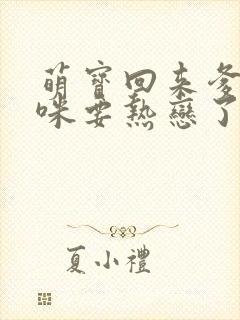 萌寶回來爹
咪要熱戀了
夏小禮